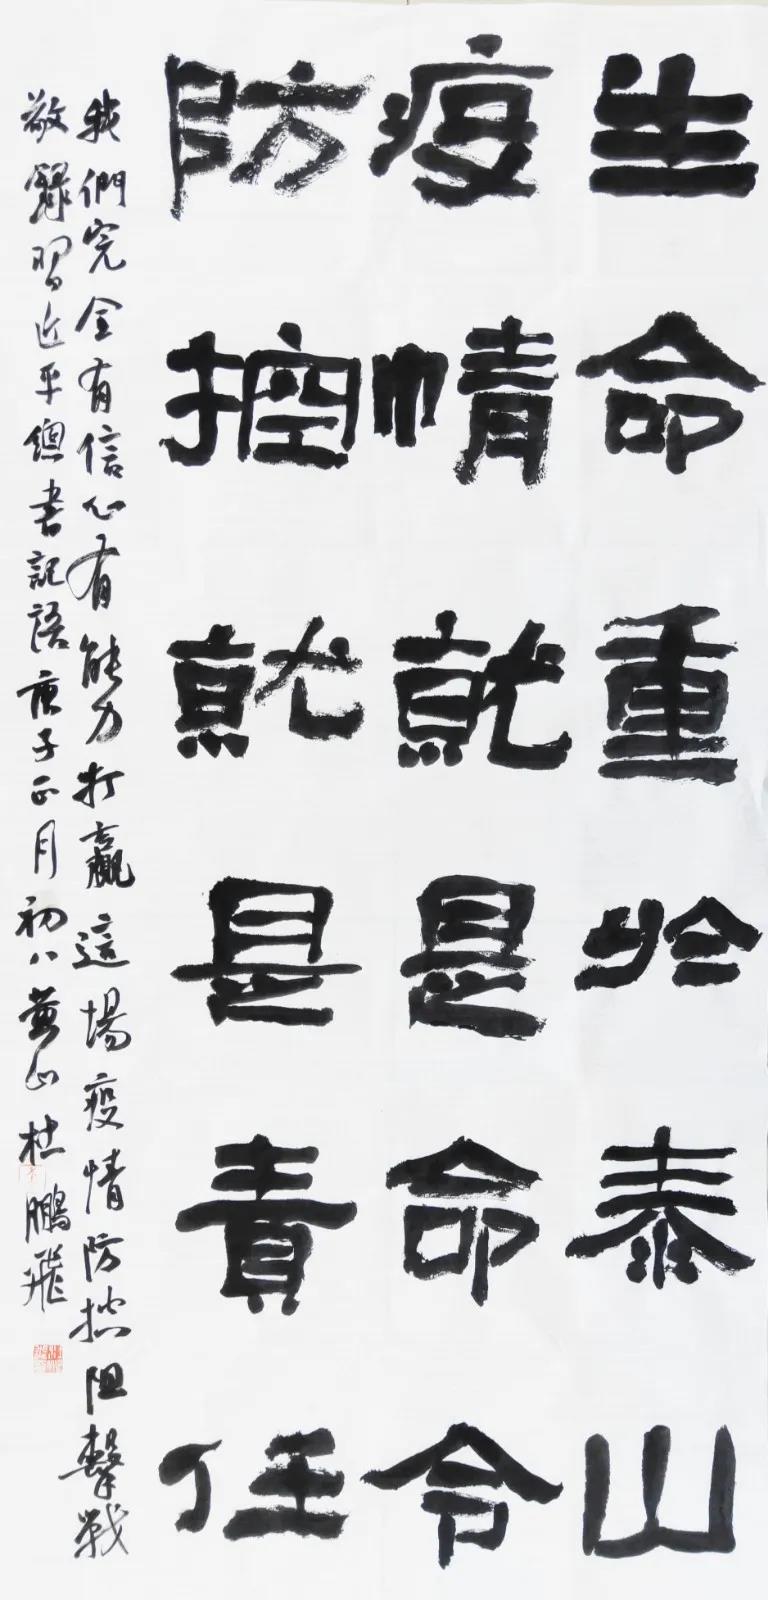 生命重於泰山
疫情就是命令
防控就是責任
我們完全有信心有能力打贏這場疫情防控阻擊戰
敬錄習近平總書記語庚子正月初八黃山杜鵬飛